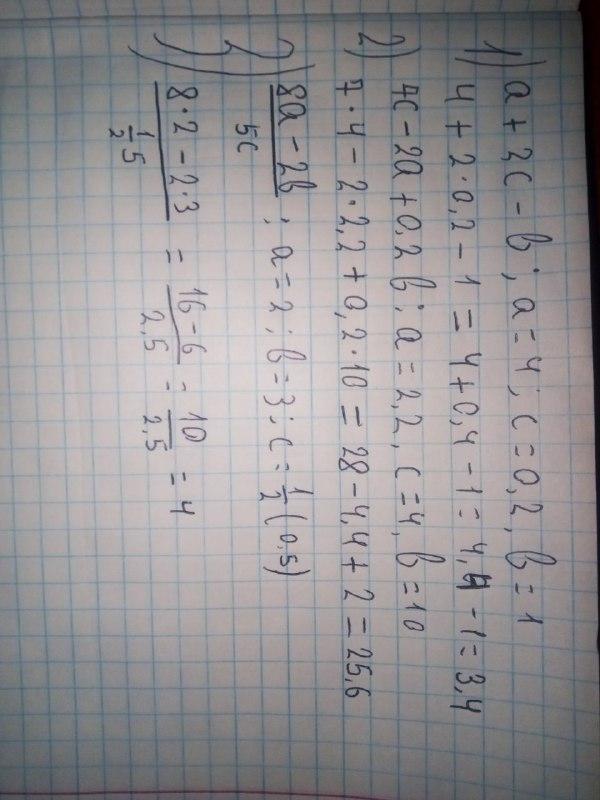 1) a + 2c - b; a = 4; c = 0,2, b = 1
4 + 2·0,2 - 1 = 4 + 0,4 - 1 = 4,4 - 1 = 3,4
2) 7c - 2a + 0,2 b; a = 2,2, c = 4, b = 10
7·4 - 2·2,2 + 0,2·10 = 28 - 4,4 + 2 = 25,6
8a - 2b / 5c ; a = 2; b = 3; c = 1/2 (0,5)
8·2 - 2·3 / 1/2 5 = 16 - 6 / 2,5 = 10 / 2,5 = 4